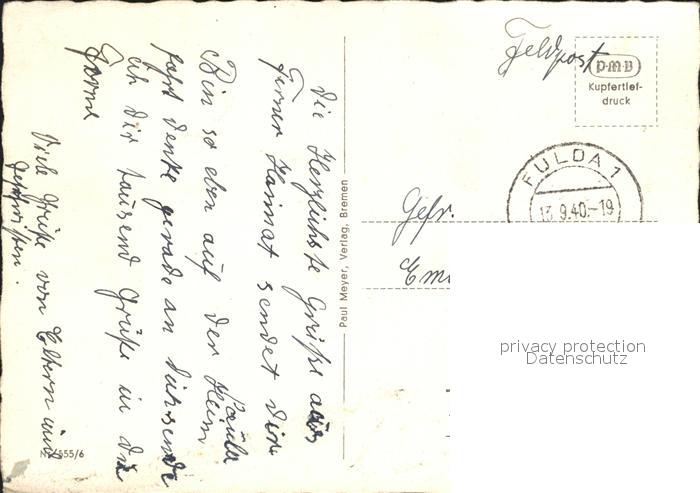 Die Herzlichste Grüße aus
Ferner Heimat sendet dir
Paula
Bin so eben auf der Heim
fahrt denke gerade an dich sende
ich dir tausend Grüße in die
Ferne
Viele Grüße von Eltern und
Geschwister.
Nr. 555/6
Paul Meyer, Verlag, Bremen
Feldpost
PMB
Kupfertief-
druck
FULDA 1
13.9.40.-19
Gefr.
privacy protection
Datenschutz